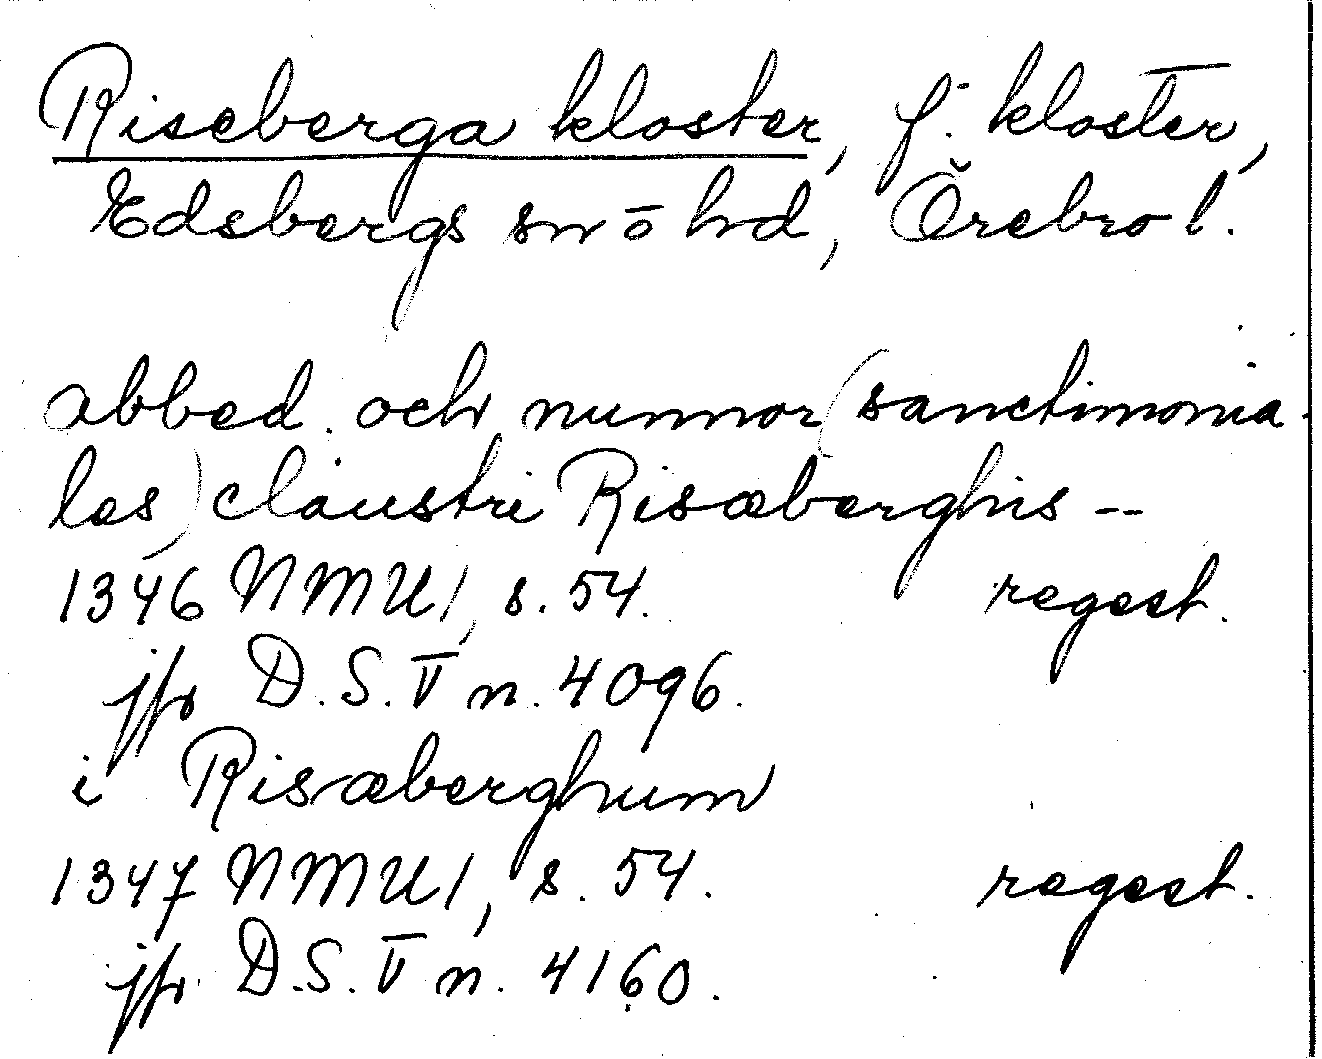 Riseberga kloster, f. kloster,
Edsbergs sn o hd, Örebro l.
abbed. och nunnor (sanctimonia-
les) claustri Risæberghis --
1346 NMU 1, s. 54. regest.
jfr D.S. V n. 4096.
i Risæberghum
1347 NMU 1, s. 54. regest.
jfr D.S. V n. 4160.